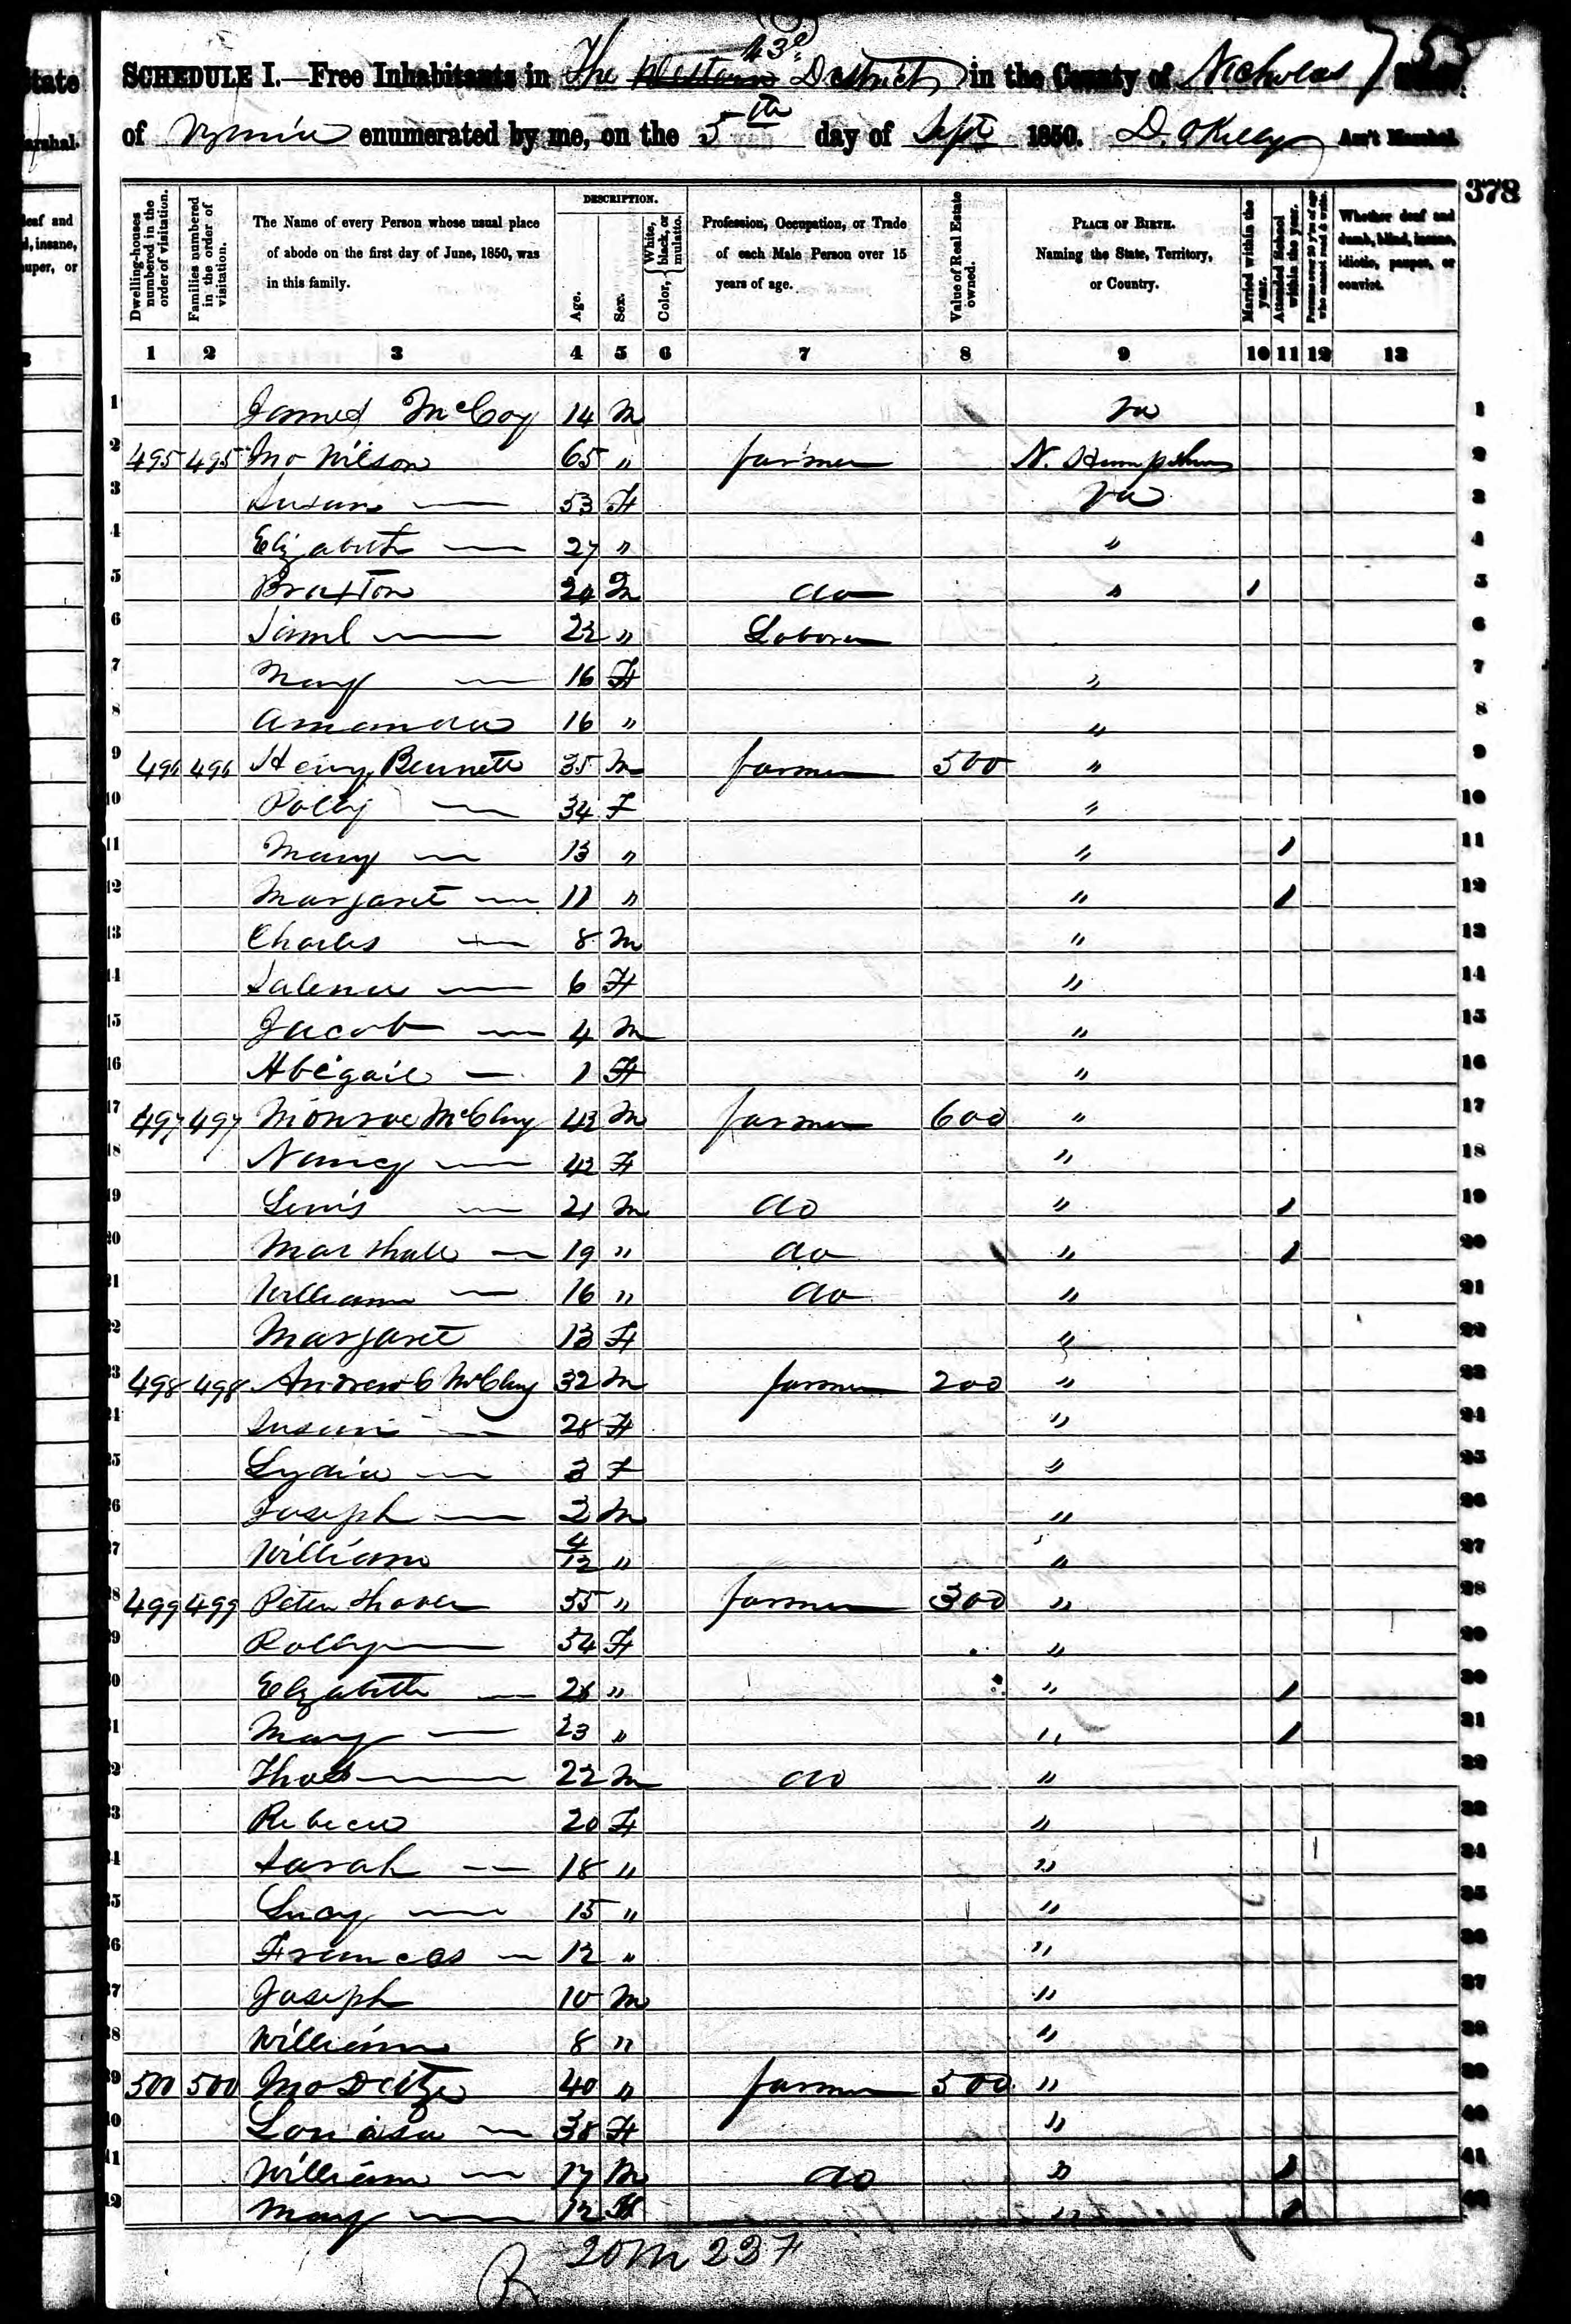 755
SCHEDULE I.—Free Inhabitants in The Western 43d District in the County of Nicholas
of Virginia enumerated by me, on the 5th day of Sept 1850. D. O'Kelly Ass't Marshal.
378
Dwelling-houses numbered in the order of visitation.
Families numbered in the order of visitation.
The Name of every Person whose usual place of abode on the first day of June, 1850, was in this family.
DESCRIPTION.
Age.
Sex.
Color, { White, black, or mulatto.
Profession, Occupation, or Trade of each Male Person over 15 years of age.
Value of Real Estate owned.
PLACE OF BIRTH. Naming the State, Territory, or Country.
Married within the year.
Attended School within the year.
Persons over 20 y'rs of age who cannot read & write.
Whether deaf and dumb, blind, insane, idiotic, pauper, or convict.
1 2 3 4 5 6 7 8 9 10 11 12 13
1 James McCoy 14 M Va 1
2 495 495 Jno Wilson 65 " farmer N. Hampshire 2
3 Susan — 53 F Va 3
4 Elizabeth — 27 " " 4
5 Braxton 24 M do " 1 5
6 Saml — 22 " Laborer 6
7 Mary — 16 F " 7
8 Amanda 16 " " 8
9 496 496 Henry Bennett 35 M farmer 500 " 9
10 Polly — 34 F " 10
11 Mary — 13 " " 1 11
12 Margaret — 11 " " 1 12
13 Charles — 8 M " 13
14 Salena — 6 F " 14
15 Jacob — 4 M " 15
16 Abigail — 1 F " 16
17 497 497 Monroe McClung 43 M farmer 600 " 17
18 Nancy — 42 F " 18
19 Lewis — 21 M do " 1 19
20 Marshall — 19 " do " 1 20
21 William — 16 " do " 21
22 Margaret 13 F " 22
23 498 498 Andrew C McClung 32 M farmer 200 " 23
24 Susan — 28 F " 24
25 Lydia — 3 F " 25
26 Joseph — 2 M " 26
27 William 4/12 " " 27
28 499 499 Peter Shaver 55 " farmer 300 " 28
29 Polly — 54 F " 29
30 Elizabeth — 26 " " 1 30
31 Mary — 23 " " 1 31
32 Thos — 22 M do " 32
33 Rebecca 20 F " 33
34 Sarah — 18 " " 1 34
35 Lucy — 15 " " 35
36 Frances — 12 " " 36
37 Joseph 10 M " 37
38 William 8 " " 38
39 500 500 Jno Deitz 40 " farmer 500 " 39
40 Louisa — 38 F " 40
41 William — 17 M do " 1 41
42 Mary — 12 F " 1 42
20 M 22 F